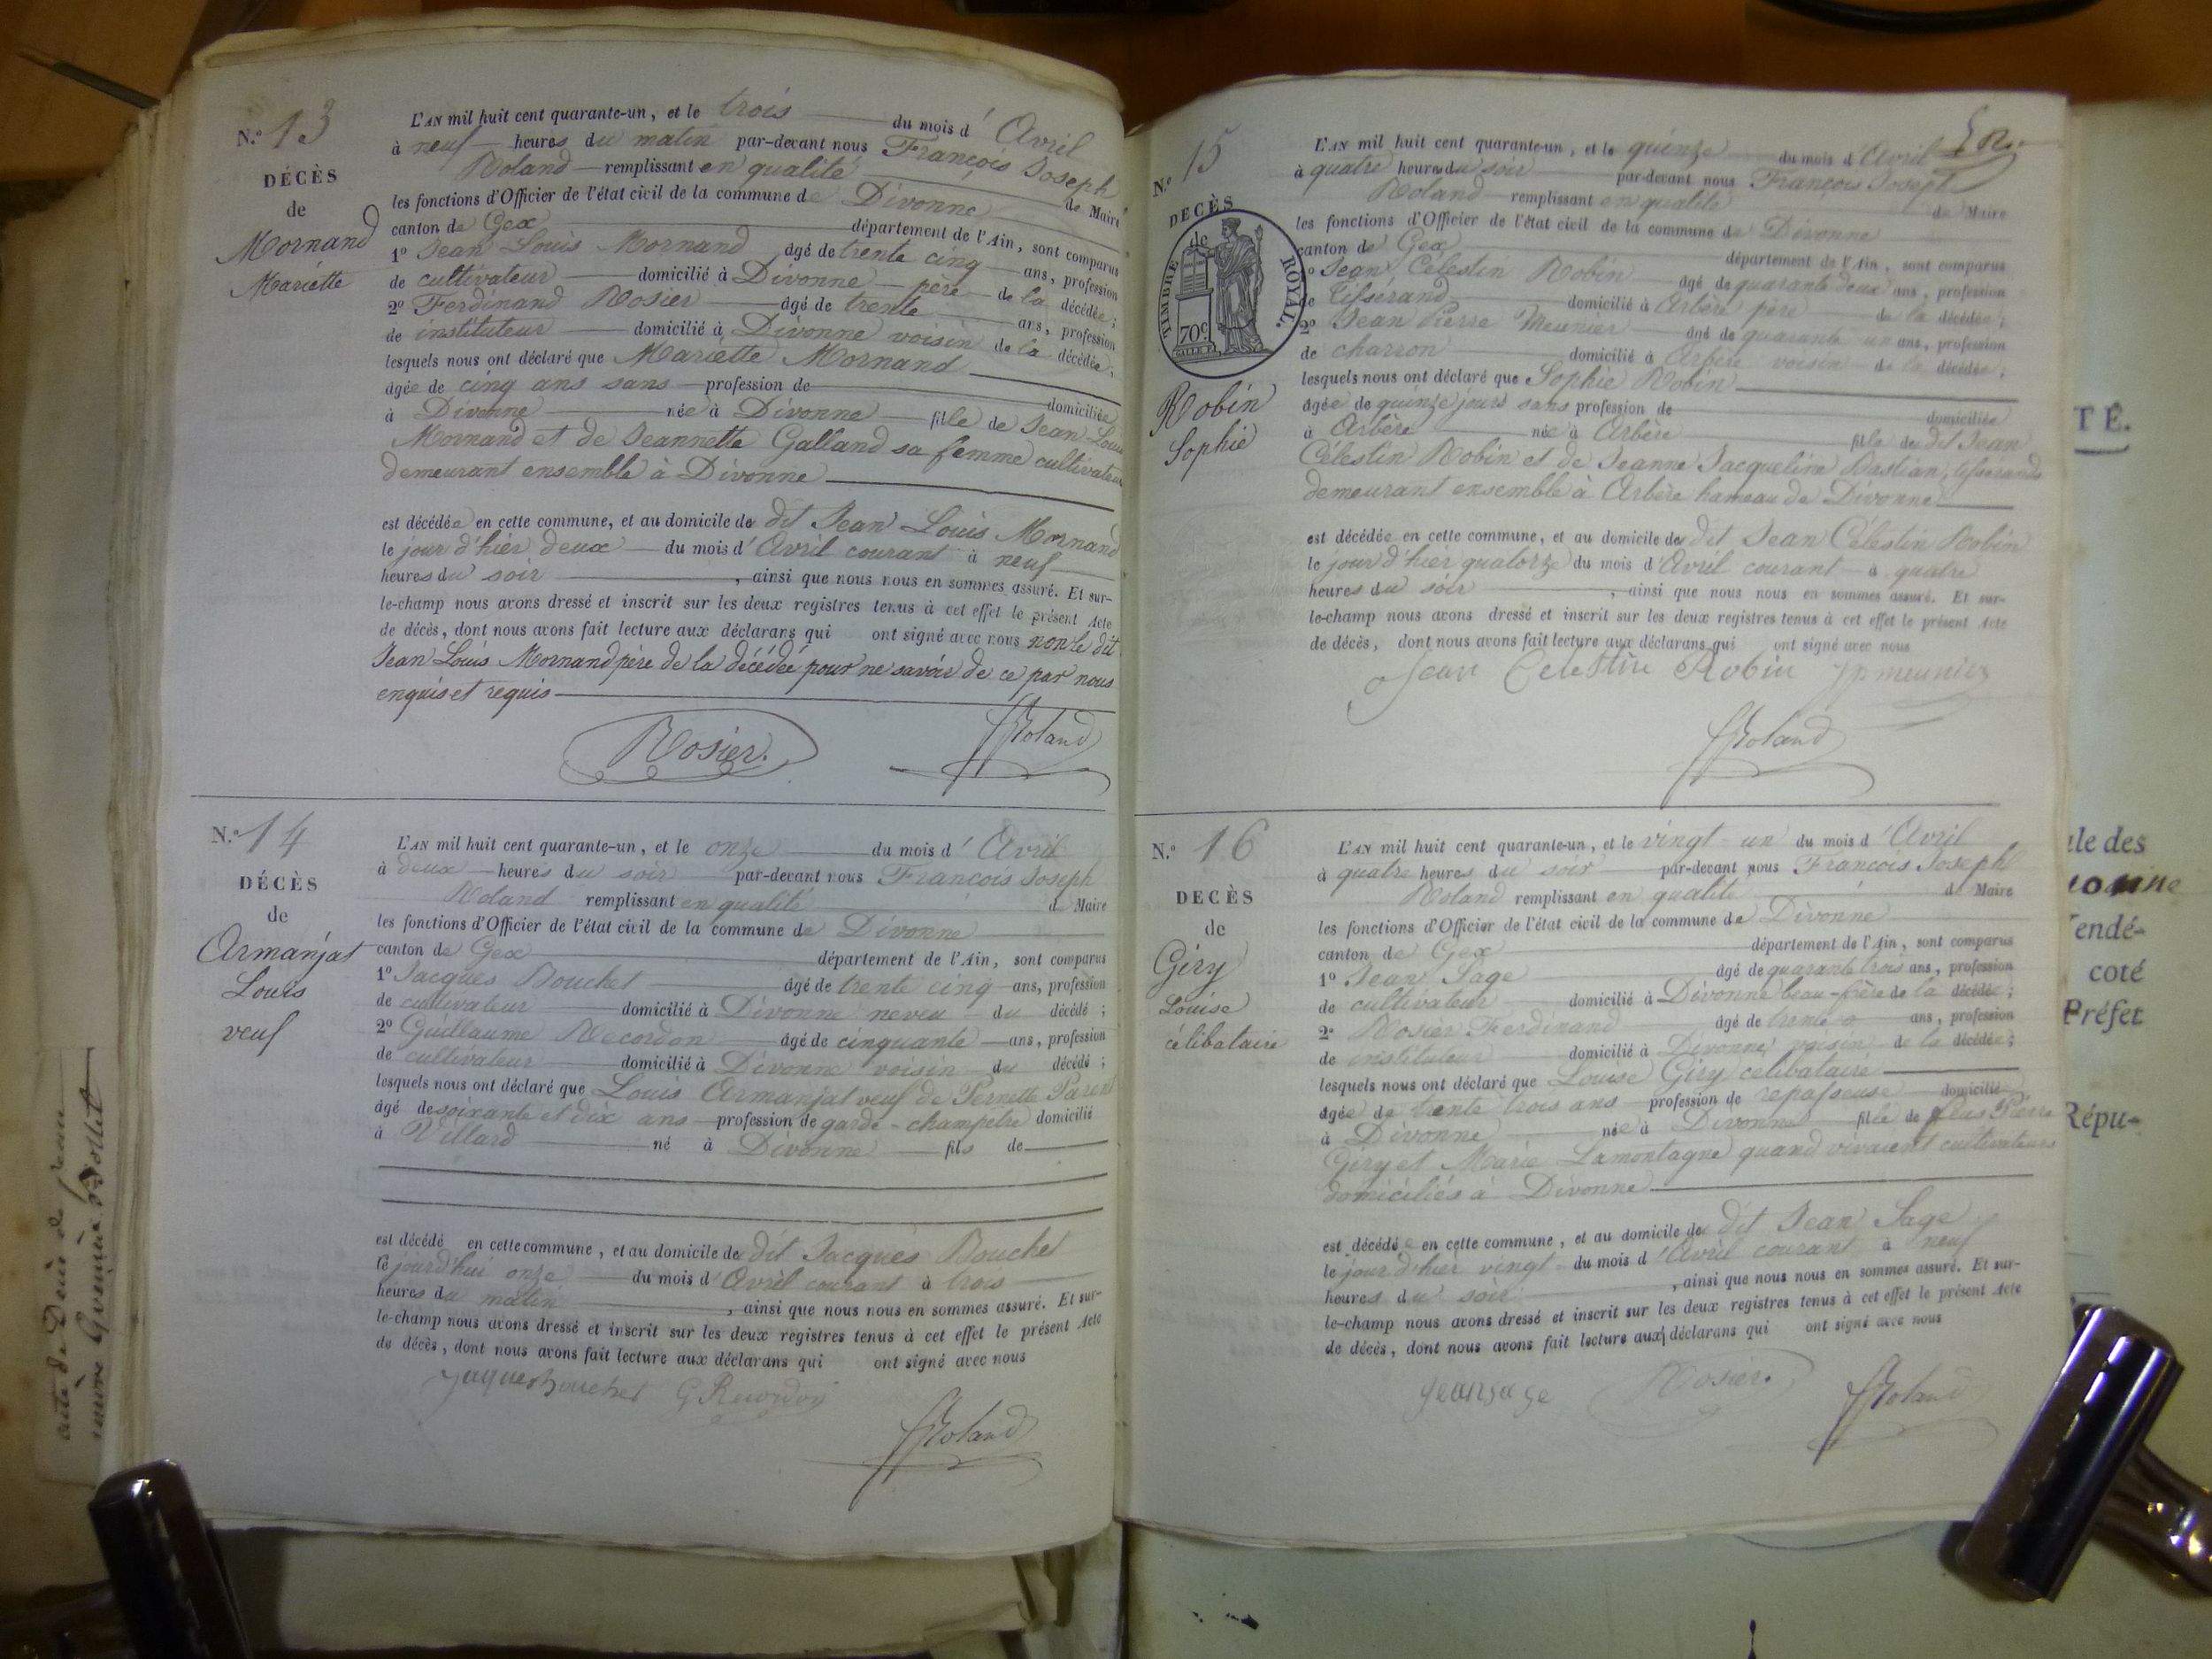 N.º 13
DÉCÈS
de
Mornand
Mariette
L'AN mil huit cent quarante-un, et le trois du mois d'Avril
à neuf heures du matin par-devant nous François Joseph
Roland remplissant en qualité de Maire
les fonctions d'Officier de l'état civil de la commune de Divonne
canton de Gex département de l'Ain, sont comparus
1º Jean Louis Mornand âgé de trente cinq ans, profession
de cultivateur domicilié à Divonne père de la décédée;
2º Ferdinand Rosier âgé de trente ans, profession
de instituteur domicilié à Divonne voisin de la décédée,
lesquels nous ont déclaré que Mariette Mornand
agée de cinq ans sans profession de domiciliée
à Divonne née à Divonne fille de Jean Louis
Mornand et de Jeannette Galland sa femme cultivateurs
demeurant ensemble à Divonne
est décédée en cette commune, et au domicile de dit Jean Louis Mornand
le jour d'hier deux du mois d'Avril courant à neuf
heures du soir, ainsi que nous nous en sommes assuré. Et sur-
le-champ nous avons dressé et inscrit sur les deux registres tenus à cet effet le présent Acte
de décès, dont nous avons fait lecture aux déclarans qui ont signé avec nous non le dit
Jean Louis Mornand père de la décédée pour ne savoir de ce par nous
enquis et requis
Rosier. Roland
N.º 14
DÉCÈS
de
Armanjat
Louis
veuf
L'AN mil huit cent quarante-un, et le onze du mois d'Avril
à deux heures du soir par-devant nous François Joseph
Roland remplissant en qualité de Maire
les fonctions d'Officier de l'état civil de la commune de Divonne
canton de Gex département de l'Ain, sont comparus
1º Jacques Bouchet âgé de trente cinq ans, profession
de cultivateur domicilié à Divonne neveu du décédé;
2º Guillaume Recordon âgé de cinquante ans, profession
de cultivateur domicilié à Divonne voisin du décédé;
lesquels nous ont déclaré que Louis Armanjat veuf de Pernette Parent
âgé de soixante et dix ans profession de garde-champêtre domicilié
à Villard né à Divonne fils de
est décédé en cette commune, et au domicile de dit Jacques Bouchet
le jourd'hui onze du mois d'Avril courant à trois
heures du matin, ainsi que nous nous en sommes assuré. Et sur-
le-champ nous avons dressé et inscrit sur les deux registres tenus à cet effet le présent Acte
de décès, dont nous avons fait lecture aux déclarans qui ont signé avec nous
Jaques bouchet G Recordon
Roland
N.º 15
DECÈS
de
TIMBRE ROYAL.
70c
Robin
Sophie
L'AN mil huit cent quarante-un, et le quinze du mois d'Avril
à quatre heures du soir par-devant nous François Joseph
Roland remplissant en qualité de Maire
les fonctions d'Officier de l'état civil de la commune de Divonne
canton de Gex département de l'Ain, sont comparus
1º Jean Célestin Robin âgé de quarante deux ans, profession
de Tisserand domicilié à Arbère père de la décédée;
2º Jean Pierre Meunier âgé de quarante un ans, profession
de charron domicilié à Arbère voisin de la décédée;
lesquels nous ont déclaré que Sophie Robin
âgée de quinze jours sans profession de domiciliée
à Arbère née à Arbère fille de dit Jean
Célestin Robin et de Jeanne Jacqueline Bastian, tisserands
demeurant ensemble à Arbère hameau de Divonne
est décédée en cette commune, et au domicile de dit Jean Célestin Robin
le jour d'hier quatorze du mois d'Avril courant à quatre
heures du soir, ainsi que nous nous en sommes assuré. Et sur-
le-champ nous avons dressé et inscrit sur les deux registres tenus à cet effet le présent Acte
de décès, dont nous avons fait lecture aux déclarans qui ont signé avec nous
Jean Celestin Robin jp meunier
Roland
N.º 16
DECÈS
de
Giry
Louise
célibataire
L'AN mil huit cent quarante-un, et le vingt-un du mois d'Avril
à quatre heures du soir par-devant nous François Joseph
Roland remplissant en qualité de Maire
les fonctions d'Officier de l'état civil de la commune de Divonne
canton de Gex département de l'Ain, sont comparus
1º Jean Sage âgé de quarante trois ans, profession
de cultivateur domicilié à Divonne beau-frère de la décédée;
2º Rosier Ferdinand âgé de trente ans, profession
de instituteur domicilié à Divonne voisin de la décédée;
lesquels nous ont déclaré que Louise Giry célibataire
âgée de trente trois ans profession de repasseuse domiciliée
à Divonne née à Divonne fille de Pierre
Giry et Marie Lamontagne quand vivaient cultivateurs
domiciliés à Divonne
est décédée en cette commune, et au domicile de dit Jean Sage
le jour d'hier vingt du mois d'Avril courant à neuf
heures du soir, ainsi que nous nous en sommes assuré. Et sur-
le-champ nous avons dressé et inscrit sur les deux registres tenus à cet effet le présent Acte
de décès, dont nous avons fait lecture aux déclarans qui ont signé avec nous
jean sage Rosier. Roland
TÉ.
ale des
endé-
coté
Préfet
Répu-